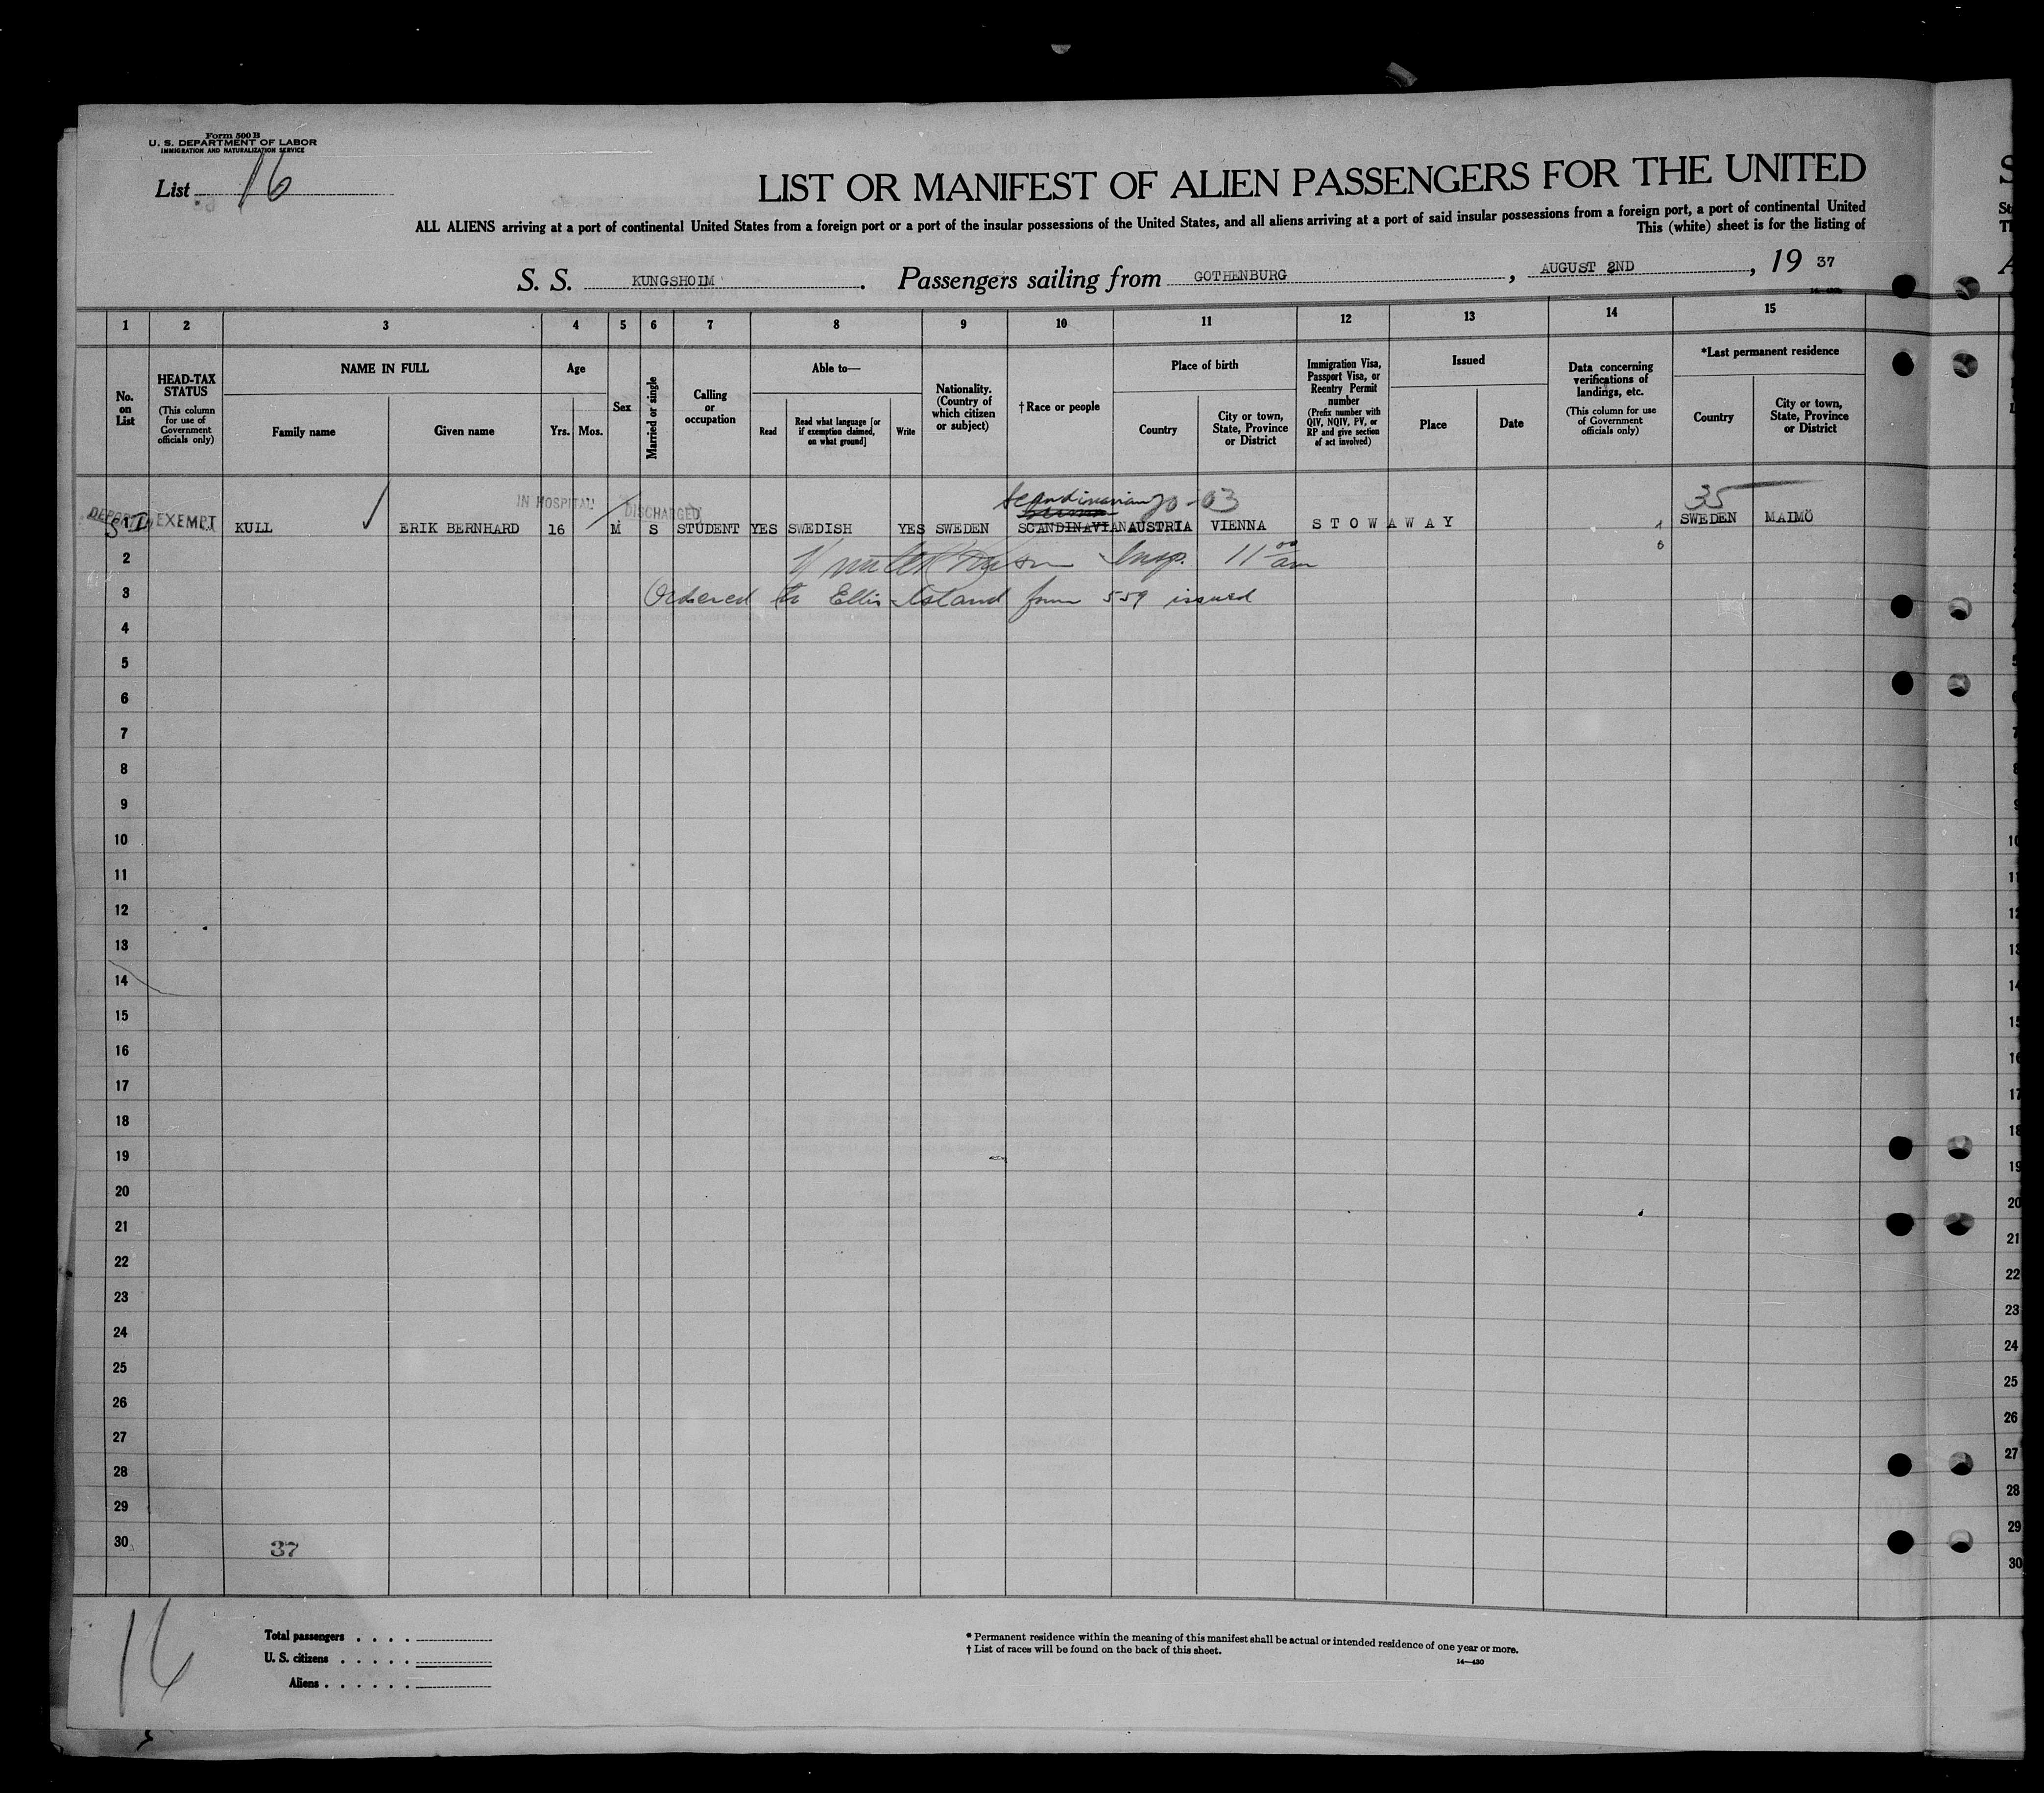 Form 500 B
U. S. DEPARTMENT OF LABOR
IMMIGRATION AND NATURALIZATION SERVICE
List 16
LIST OR MANIFEST OF ALIEN PASSENGERS FOR THE UNITED
ALL ALIENS arriving at a port of continental United States from a foreign port or a port of the insular possessions of the United States, and all aliens arriving at a port of said insular possessions from a foreign port, a port of continental United
This (white) sheet is for the listing of
S. S. KUNGSHOLM. Passengers sailing from GOTHENBURG, AUGUST 2ND, 19 37
1 2 3 4 5 6 7 8 9 10 11 12 13 14 15
No. on List
HEAD-TAX STATUS
(This column for use of Government officials only)
NAME IN FULL
Family name
Given name
Age
Yrs. Mos.
Sex
Married or single
Calling or occupation
Able to—
Read
Read what language [or if exemption claimed, on what ground]
Write
Nationality. (Country of which citizen or subject)
†Race or people
Place of birth
Country
City or town, State, Province or District
Immigration Visa, Passport Visa, or Reentry Permit number
(Prefix number with QIV, NQIV, PV, or RP and give section of act involved)
Issued
Place
Date
Data concerning verifications of landings, etc.
(This column for use of Government officials only)
*Last permanent residence
Country
City or town, State, Province or District
IN HOSPITAL DISCHARGED Scandinavian 70-03 35
SI EXEMPT KULL ERIK BERNHARD 16 M S STUDENT YES SWEDISH YES SWEDEN SCANDINAVIAN AUSTRIA VIENNA STOWAWAY SWEDEN MAIMÖ
2 Insp. 11 00 am
3 Ordered to Ellis Island form 559 issued
4
5
6
7
8
9
10
11
12
13
14
15
16
17
18
19
20
21
22
23
24
25
26
27
28
29
30
37
16
Total passengers . . . .
U. S. citizens . . . . .
Aliens . . . . . .
* Permanent residence within the meaning of this manifest shall be actual or intended residence of one year or more.
† List of races will be found on the back of this sheet.
14—430